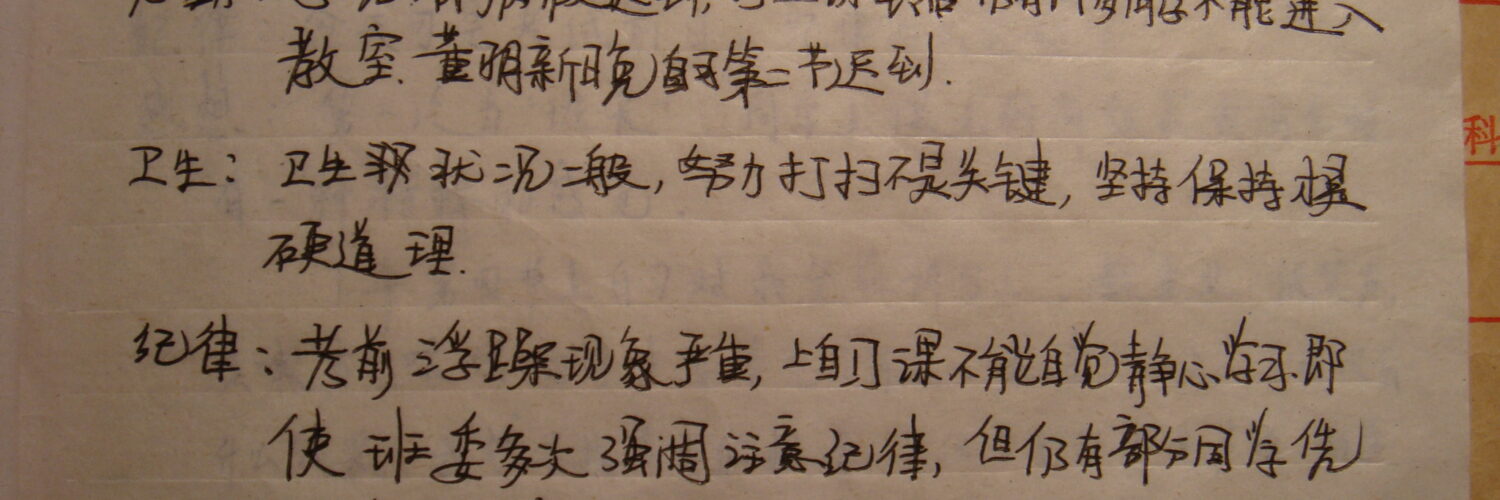 不能进入
教室.董明新晚自习第二节迟到.
卫生：卫生状况一般,努力打扫不是关键,坚持保持才是
硬道理.
科
纪律：考前浮躁现象严重,上自习课不能自觉静心学习.即
使班委多次强调注意纪律,但仍有部分同学